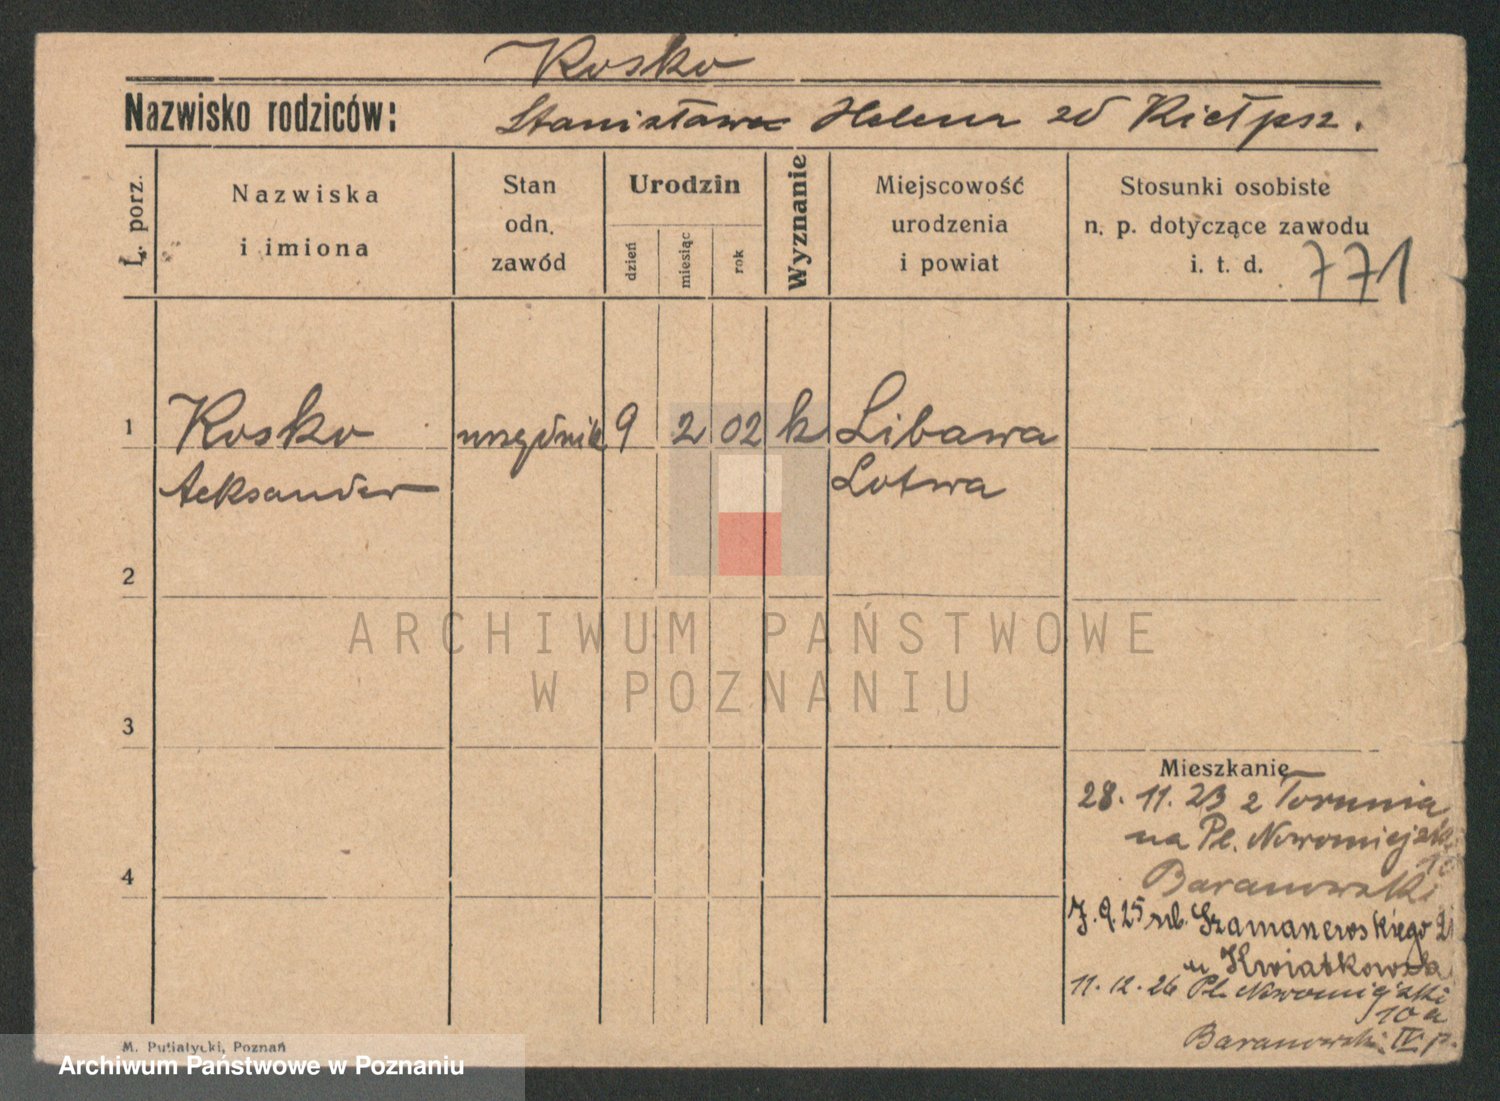 Kosko
Nazwisko rodziców: Stanisława Helena zd Kiełpsz.
L. porz.
Nazwiska
i imiona
Stan
odn.
zawód
Urodzin
dzień
miesiąc
rok
Wyznanie
Miejscowość
urodzenia
i powiat
Stosunki osobiste
n. p. dotyczące zawodu
i. t. d. 771
1 Kosko urzędnik 9 2 02 k Libawa
Aleksander Łotwa
2
ARCHIWUM PAŃSTWOWE
W POZNANIU
3
Mieszkanie
28. 11. 23 z Torunia
na Pl. Nowomiejski
10
Baranowski
4
7. 9. 25 ul. Szamarzewskiego
u Kwiatkowska
11. 12. 26 Pl. Nowomiejski
10 a
Baranowski IV p.
M. Putiatycki, Poznań
Archiwum Państwowe w Poznaniu